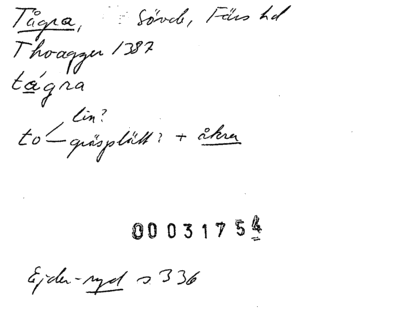 Tågra, Sövde, Färs hd
Thoagger 1387
tågra
lin?
to gräsplätt? + åkra
00031754
Ejder-ryd s 336